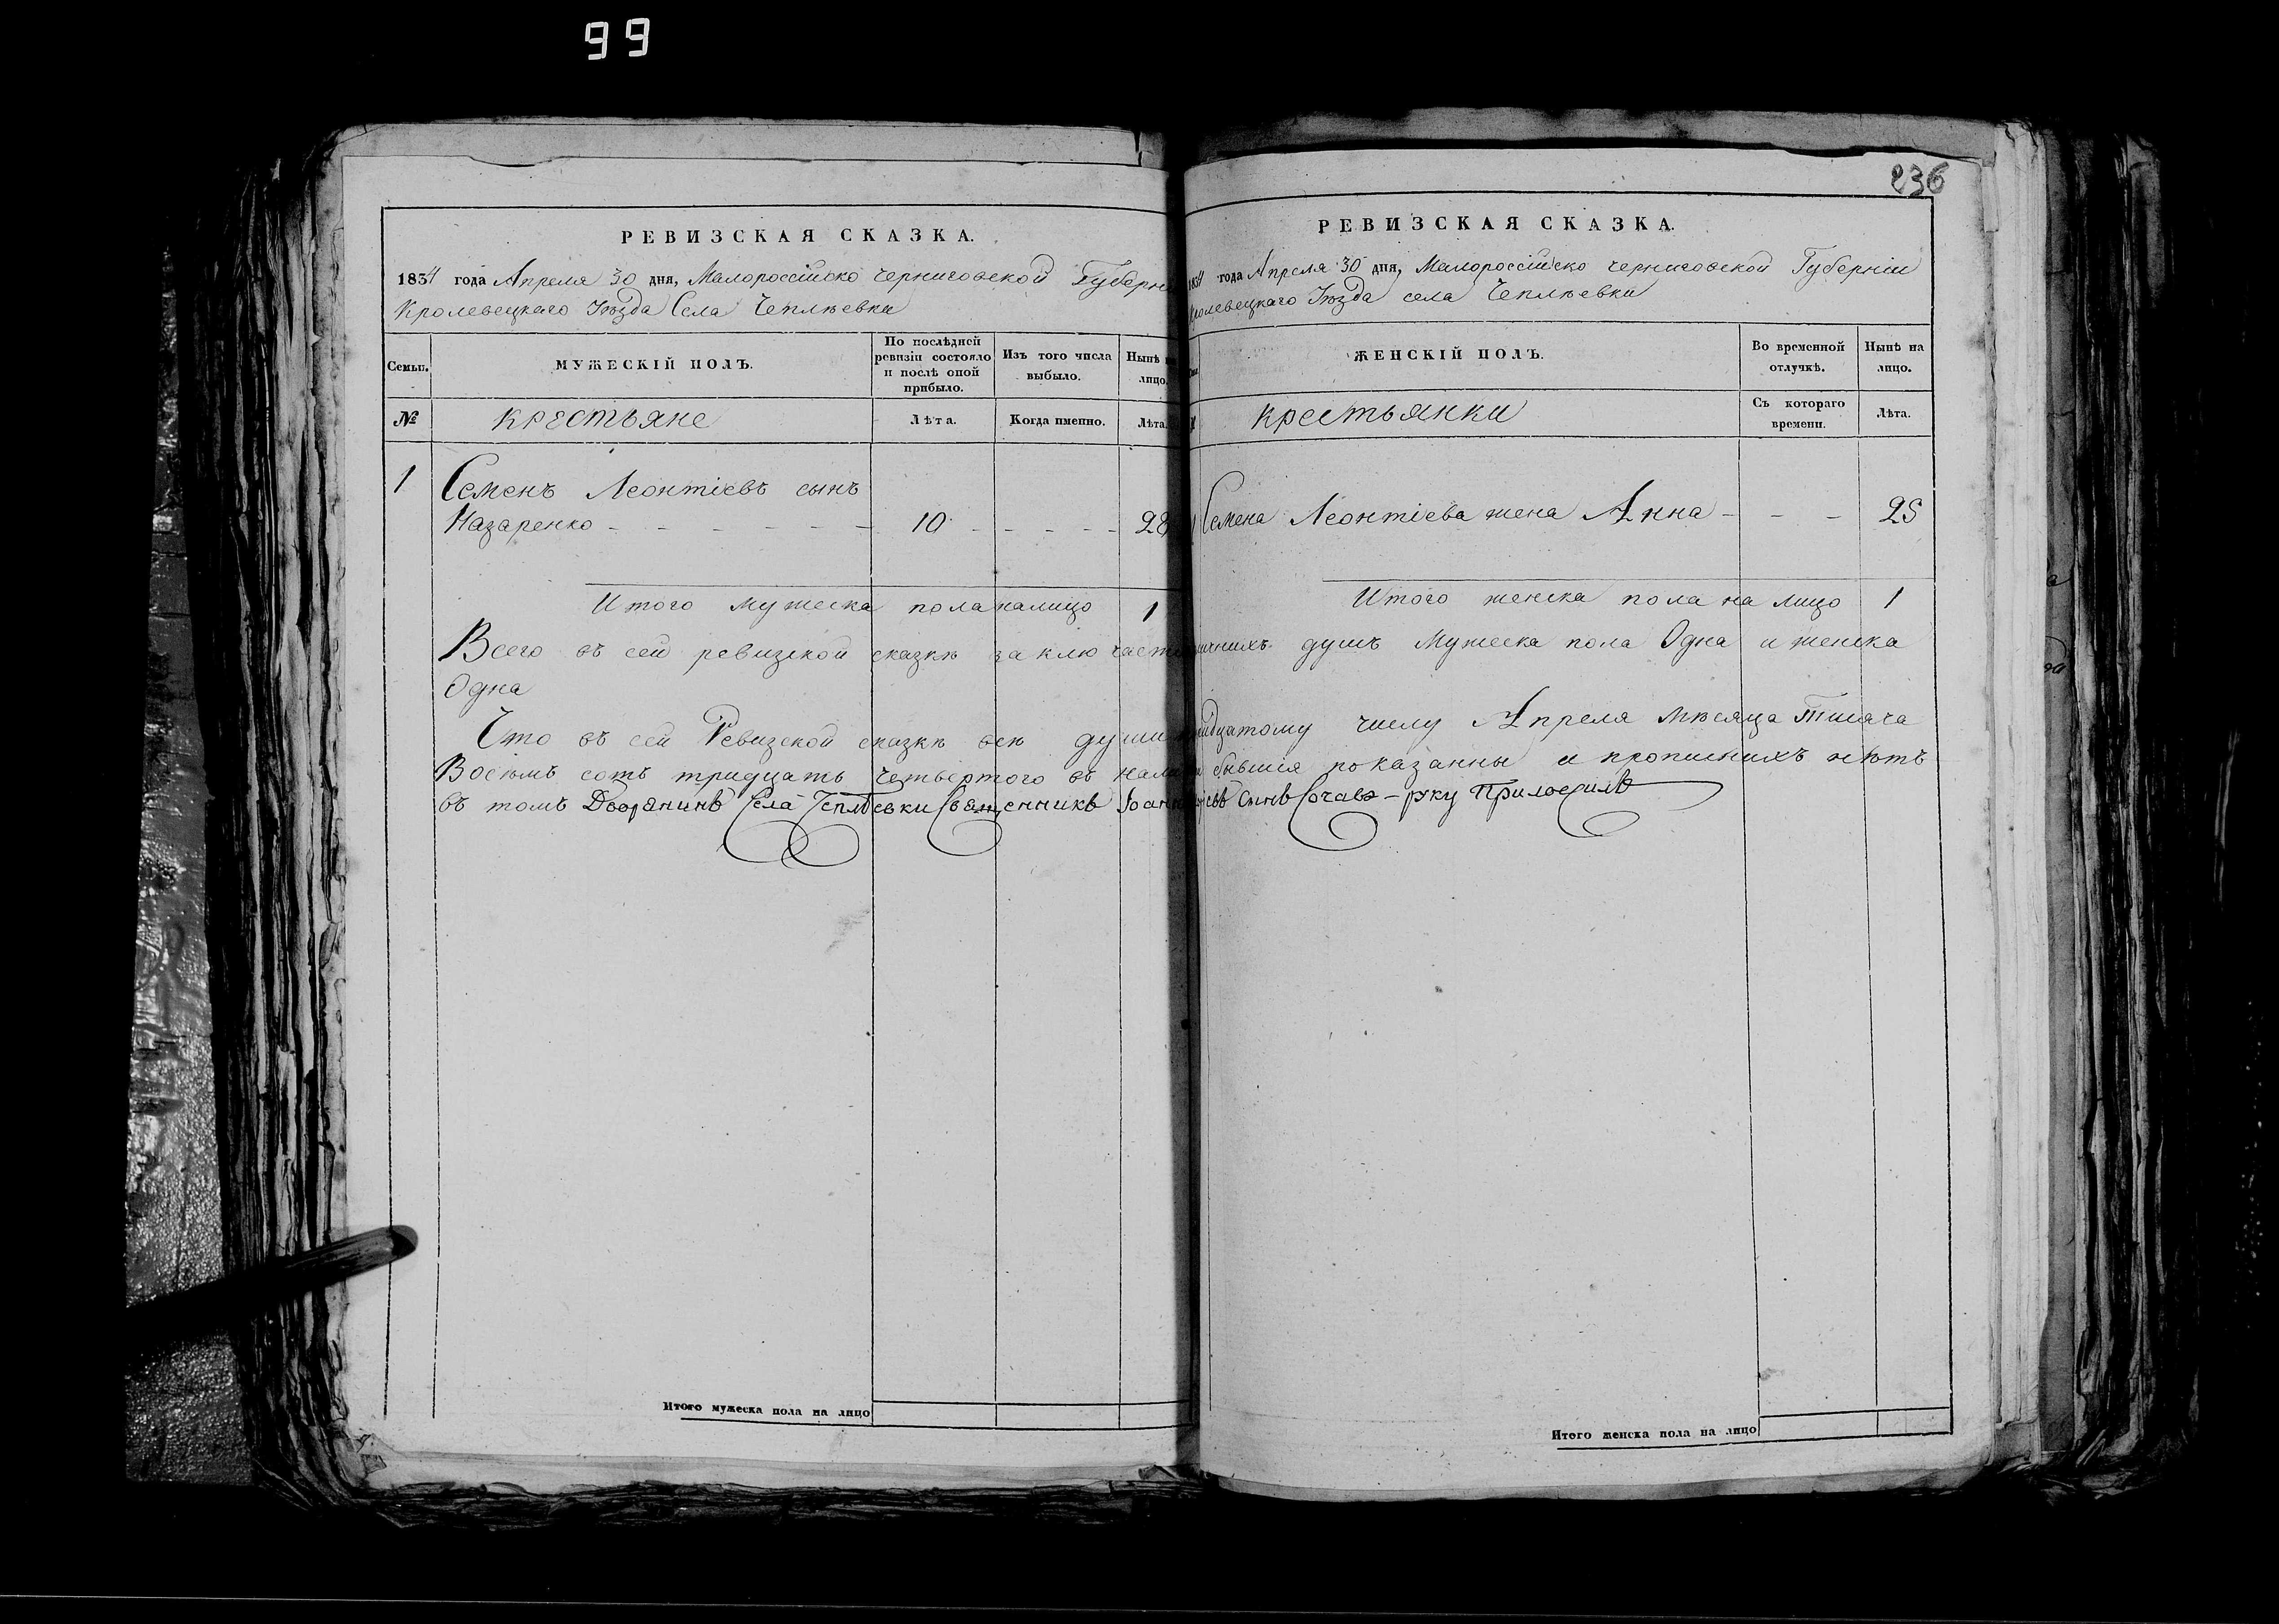 99
236
РЕВИЗСКАЯ СКАЗКА.
1834 года Апреля 30 дня, Малороссійско Черниговской Губерн
Кролевецкаго Уѣзда Села Чеплѣевки
Семьи.
МУЖЕСКІЙ ПОЛЪ.
По послѣдней ревизіи состояло и послѣ оной прибыло.
Изъ того числа выбыло.
Нынѣ на лицо.
№
Крестьяне
Лѣта.
Когда именно.
Лѣта.
1
Семенъ Леонтіевъ сынъ
Назаренко - - - - - - 10 - - - - - 28
Итого мужеска пола налицо 1
Всего въ сей ревизской сказкѣ заключает
Одна
Что въ сей Ревизской сказкѣ всѣ души
Восіомъ сотъ тридцать четвертого въ нали
въ томъ Дворянинъ Села Чеплѣевки Священникъ Іоан
Итого мужеска пола на лицо
РЕВИЗСКАЯ СКАЗКА.
1834 года Апреля 30 дня, Малороссійско Черниговской Губерніи
Кролевецкаго Уѣзда села Чеплѣевки
ЖЕНСКІЙ ПОЛЪ.
Во временной отлучкѣ.
Нынѣ на лицо.
Крестьянки
Съ котораго времени.
Лѣта.
1 Семена Леонтіева жена Анна - - - 25
Итого женска пола на лицо 1
душъ Мужеска пола Одна и женска
числу Апреля мѣсяца Тисяча
бывшія показанны и прописнихъ нѣтъ
сынъ руку Приложилъ
Итого женска пола на лицо